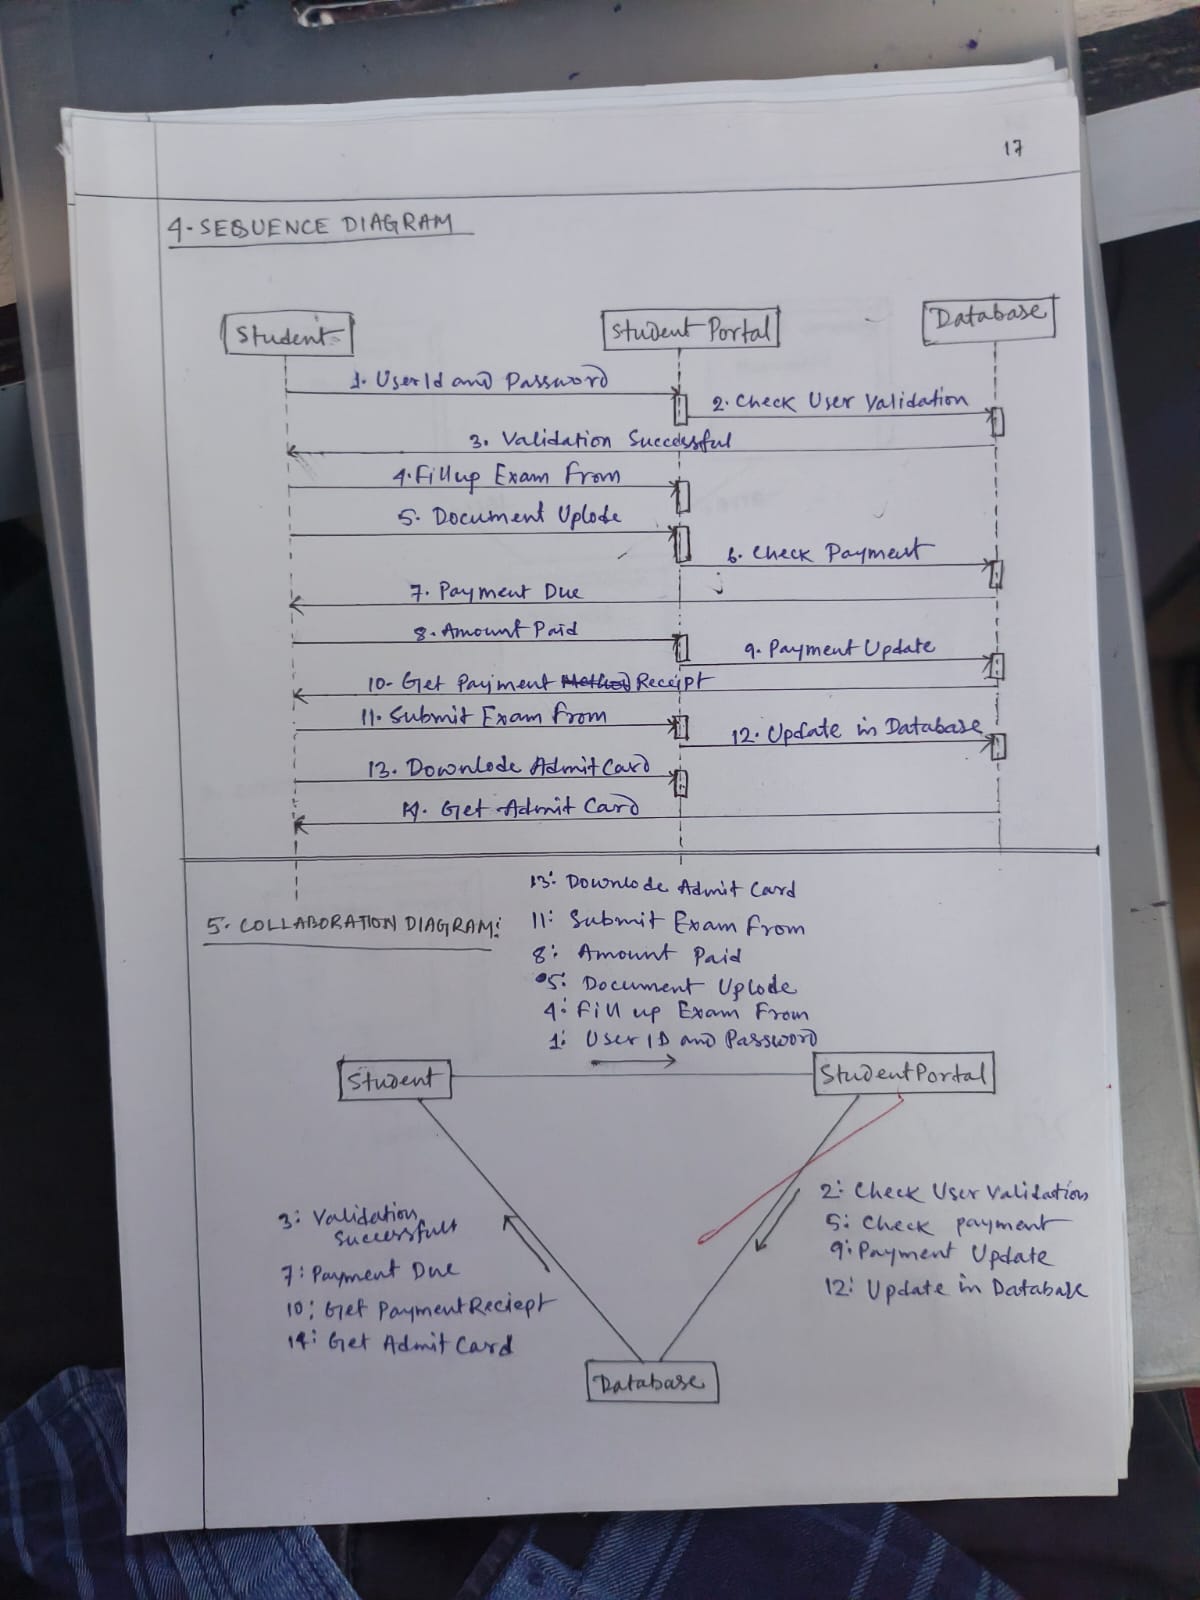 17
4. SEQUENCE DIAGRAM
Student
Student Portal
Database
1. User Id and Password
2. Check User Validation
3. Validation Successful
4. Fill up Exam From
5. Document Uplode
6. Check Payment
7. Payment Due
8. Amount Paid
9. Payment Update
10. Get Payment Method Receipt
11. Submit Exam From
12. Update in Database
13. Downlode Admit Card
14. Get Admit Card
5. COLLABORATION DIAGRAM:
13: Downlode Admit Card
11: Submit Exam From
8: Amount Paid
5: Document Uplode
4: Fill up Exam From
1: User ID and Password
Student
Student Portal
2: Check User Validation
5: Check payment
9: Payment Update
12: Update in Database
3: Validation
Successfull
7: Payment Due
10: Get Payment Reciept
14: Get Admit Card
Database